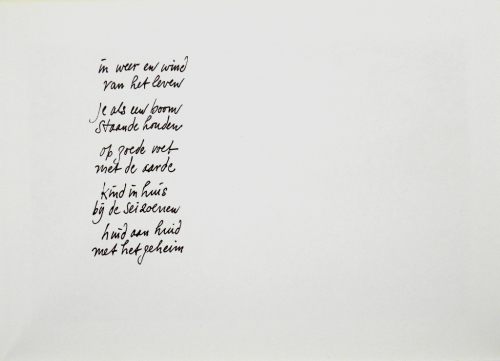 in weer en wind
van het leven
je als een boom
staande houden
op goede voet
met de aarde
kind in huis
bij de seizoenen
huid aan huid
met het geheim